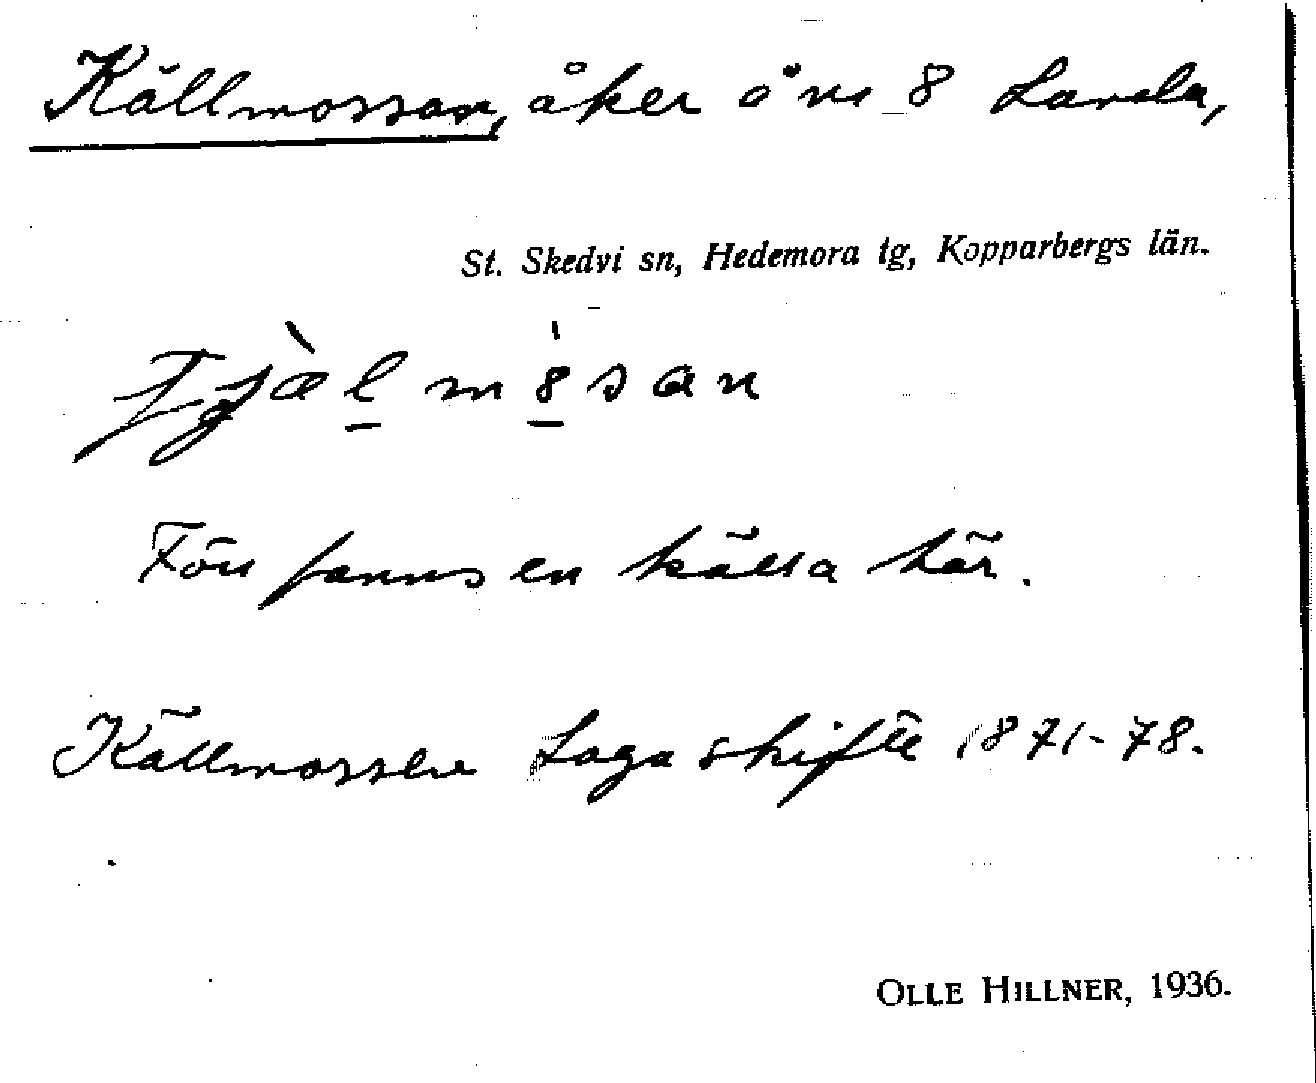 Källmossan, åker å nr 8 Landa,
St. Skedvi sn, Hedemora tg, Kopparbergs län.
mȯsan
Förr fanns en källa här.
Källmossen Laga skifte 1871-78.
OLLE HILLNER, 1936.